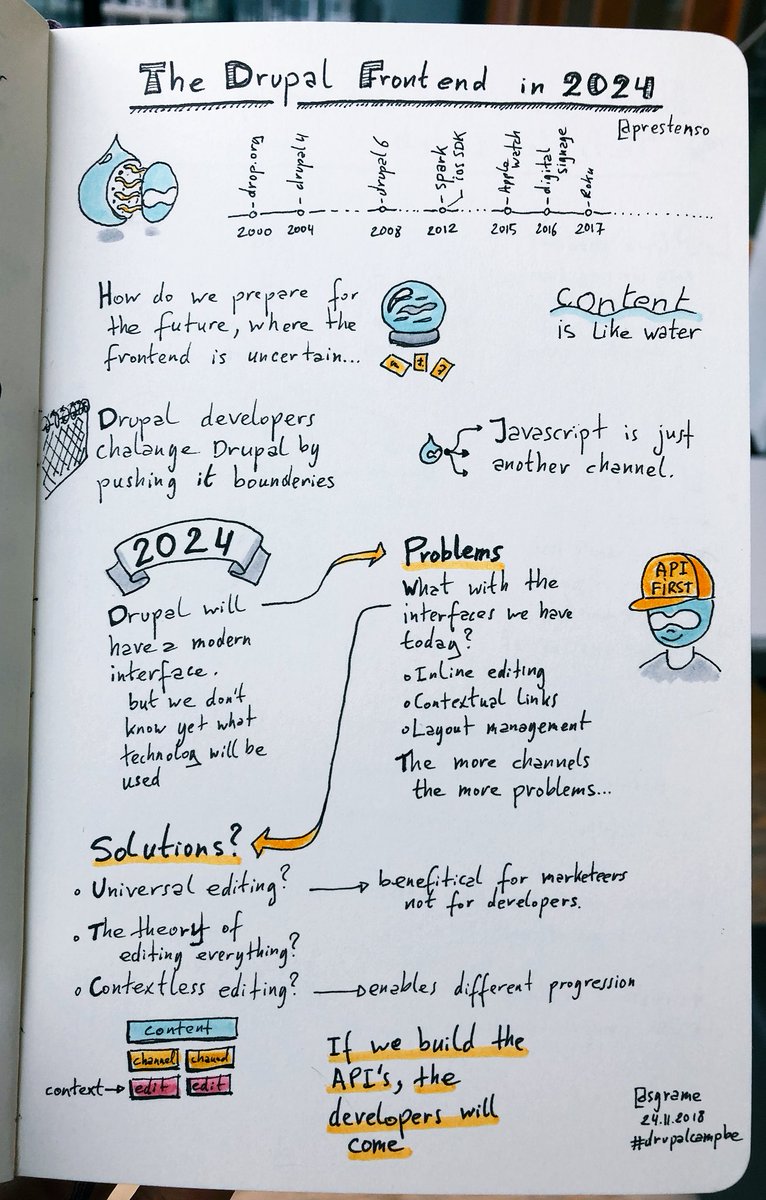 The Drupal Frontend in 2024
@prestenso
drop.org
drupal 4
drupal 6
spark
ios SDK
Apple
watch
digital
signage
Roku
2000 2004 2008 2012 2015 2016 2017
How do we prepare for
the future, where the
frontend is uncertain...
content
is like water
Drupal developers
chalange Drupal by
pushing it bounderies
Javascript is just
another channel.
2024
Drupal will
have a modern
interface.
but we don't
know yet what
technolog will be
used
Problems
What with the
interfaces we have
today?
o Inline editing
o Contextual Links
o Layout management
The more channels
the more problems...
API
FIRST
Solutions?
o Universal editing?
benefitical for marketeers
not for developers.
o The theory of
editing everything?
o Contextless editing?
enables different progression
content
channel channel
context edit edit
If we build the
API's, the
developers will
come
@sgrame
24.11.2018
#drupalcampbe